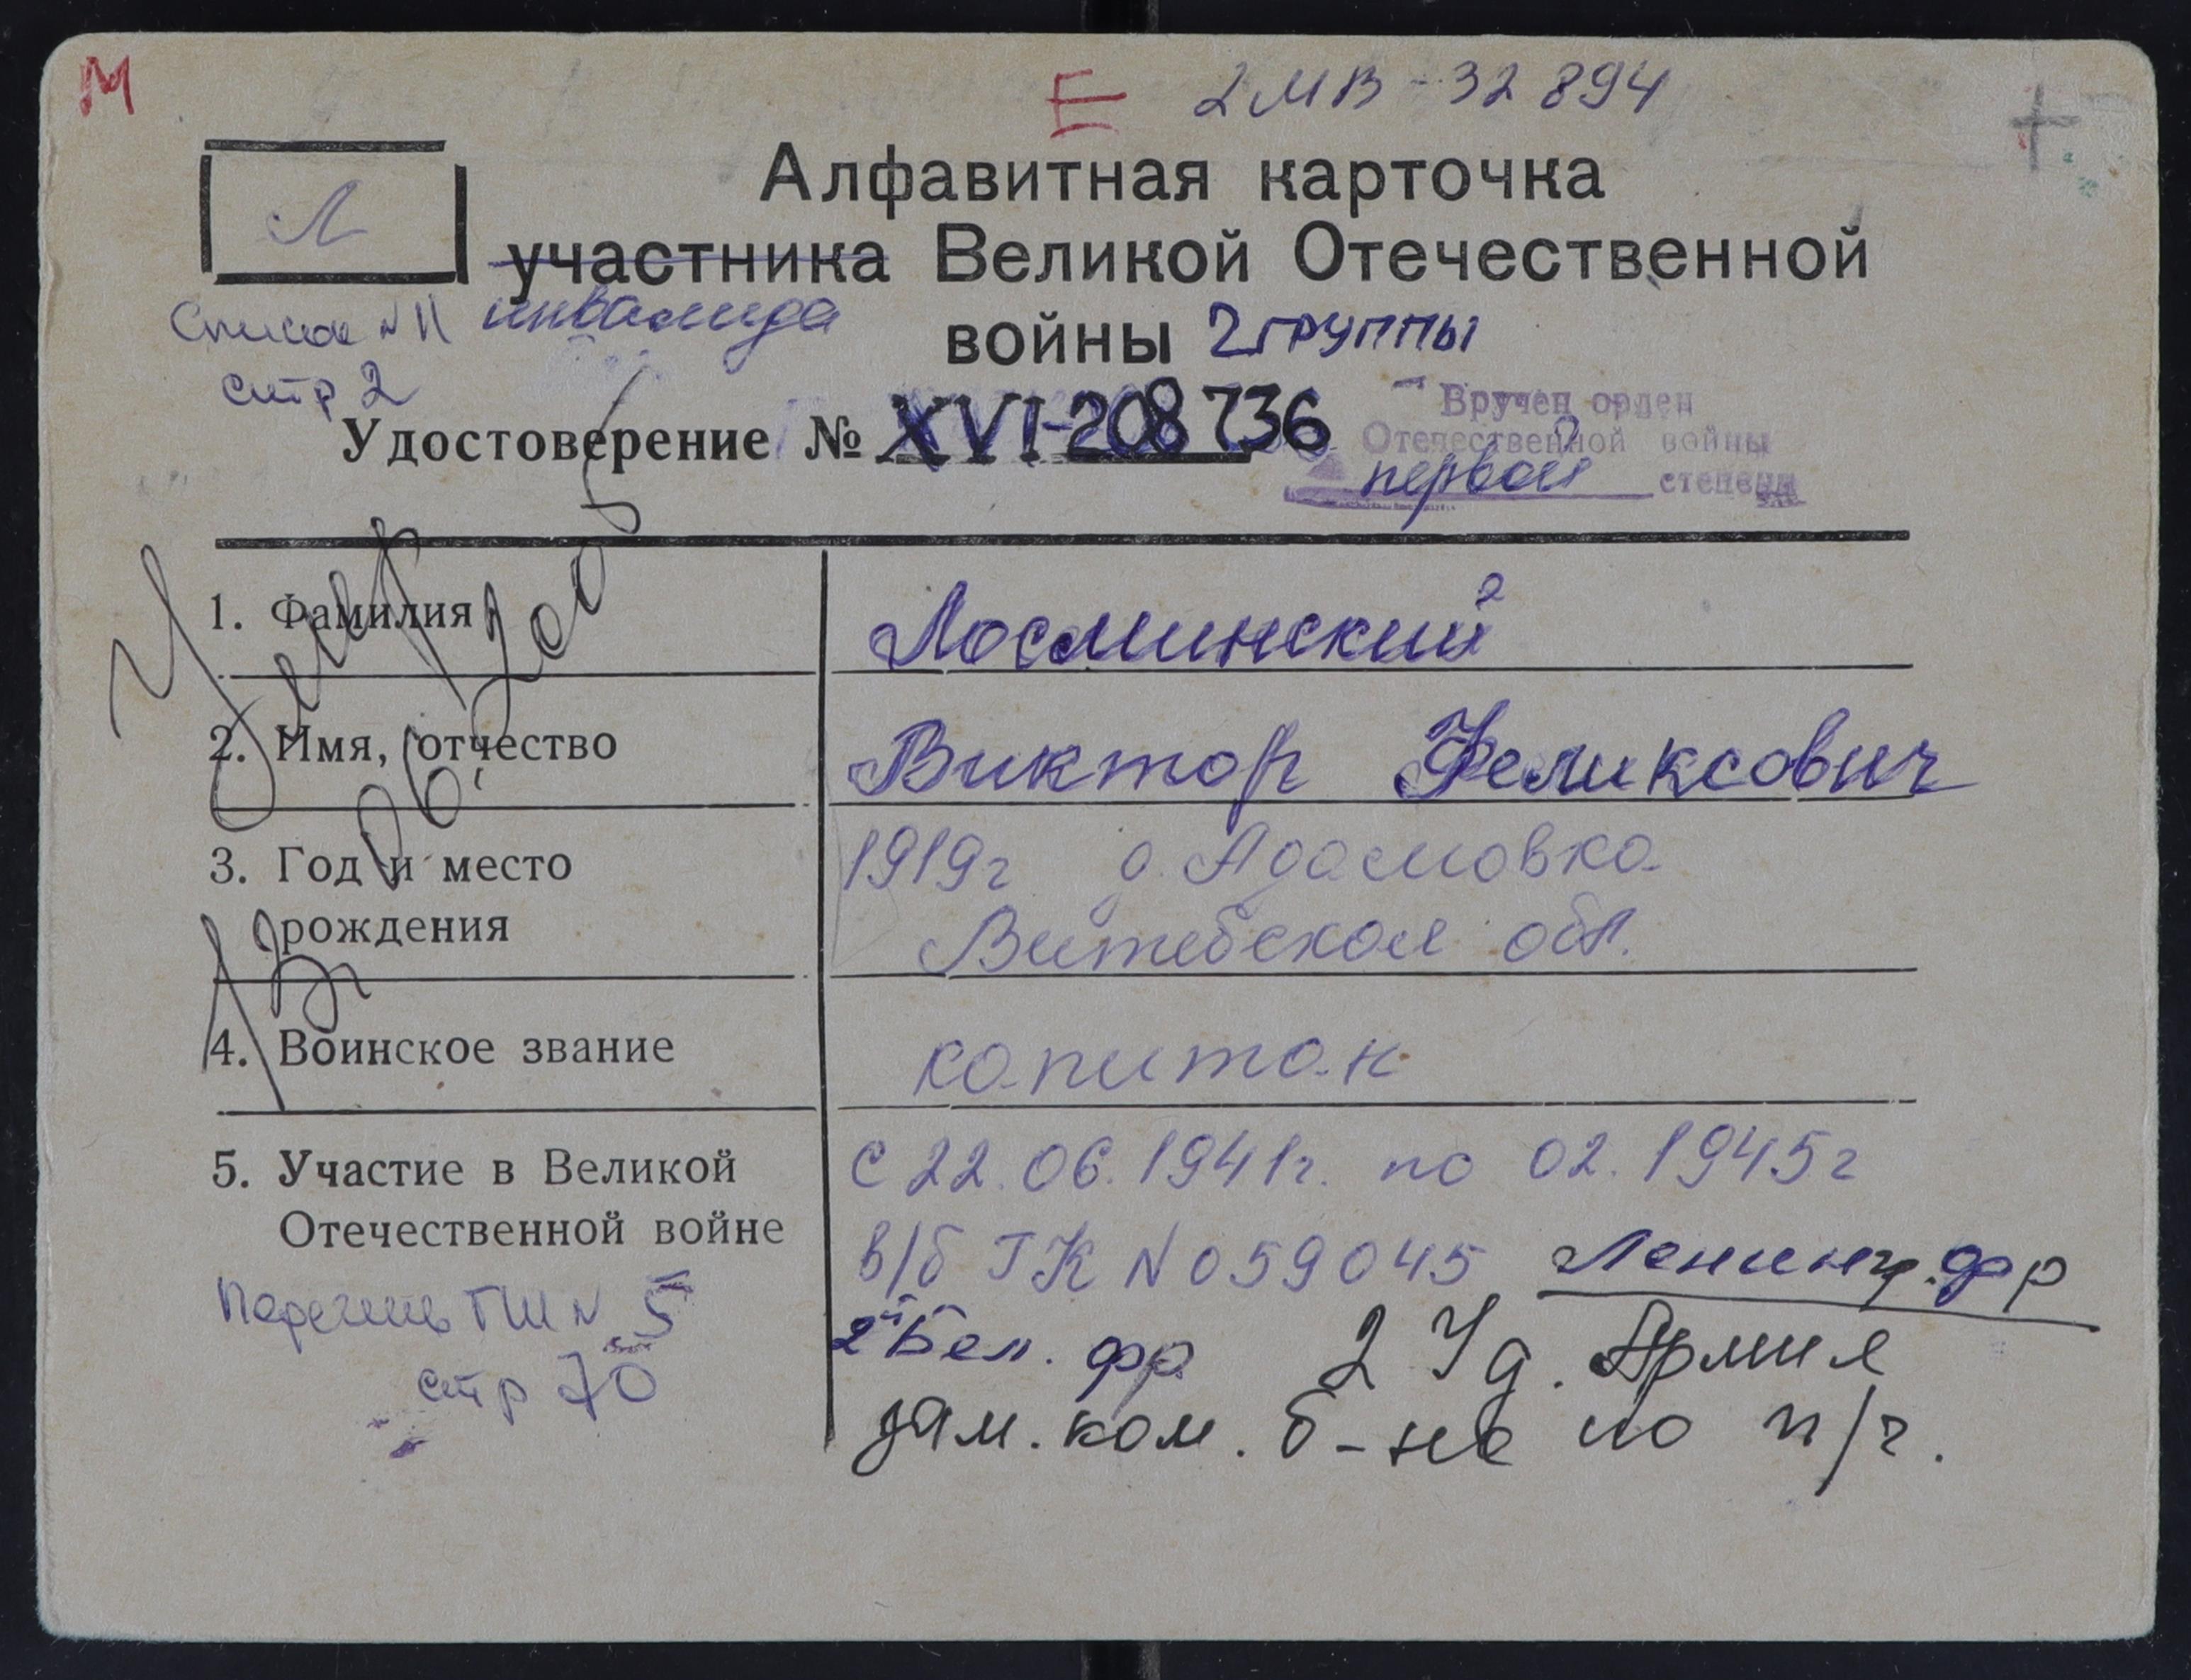 М
Е 2МВ-32894
Л
Алфавитная карточка
участника Великой Отечественной
Список №11 инвалида
войны 2 группы
стр 2
Удостоверение № XVI-208736
Вручен орден
Отечественной войны
первой степени
Умер
1. Фамилия Лосминский
2. Имя, отчество Виктор Феликсович
3. Год и место 1919г д. Адамовка
рождения Витебской обл.
4. Воинское звание капитан
5. Участие в Великой с 22.06.1941г. по 02.1945г
Отечественной войне в/б ГК №059045 Ленингр. фр
Перечень ГШ № 5 2й Бел. фр. 2 Уд. Армия
стр 70
зам. ком. б-на по п/ч.